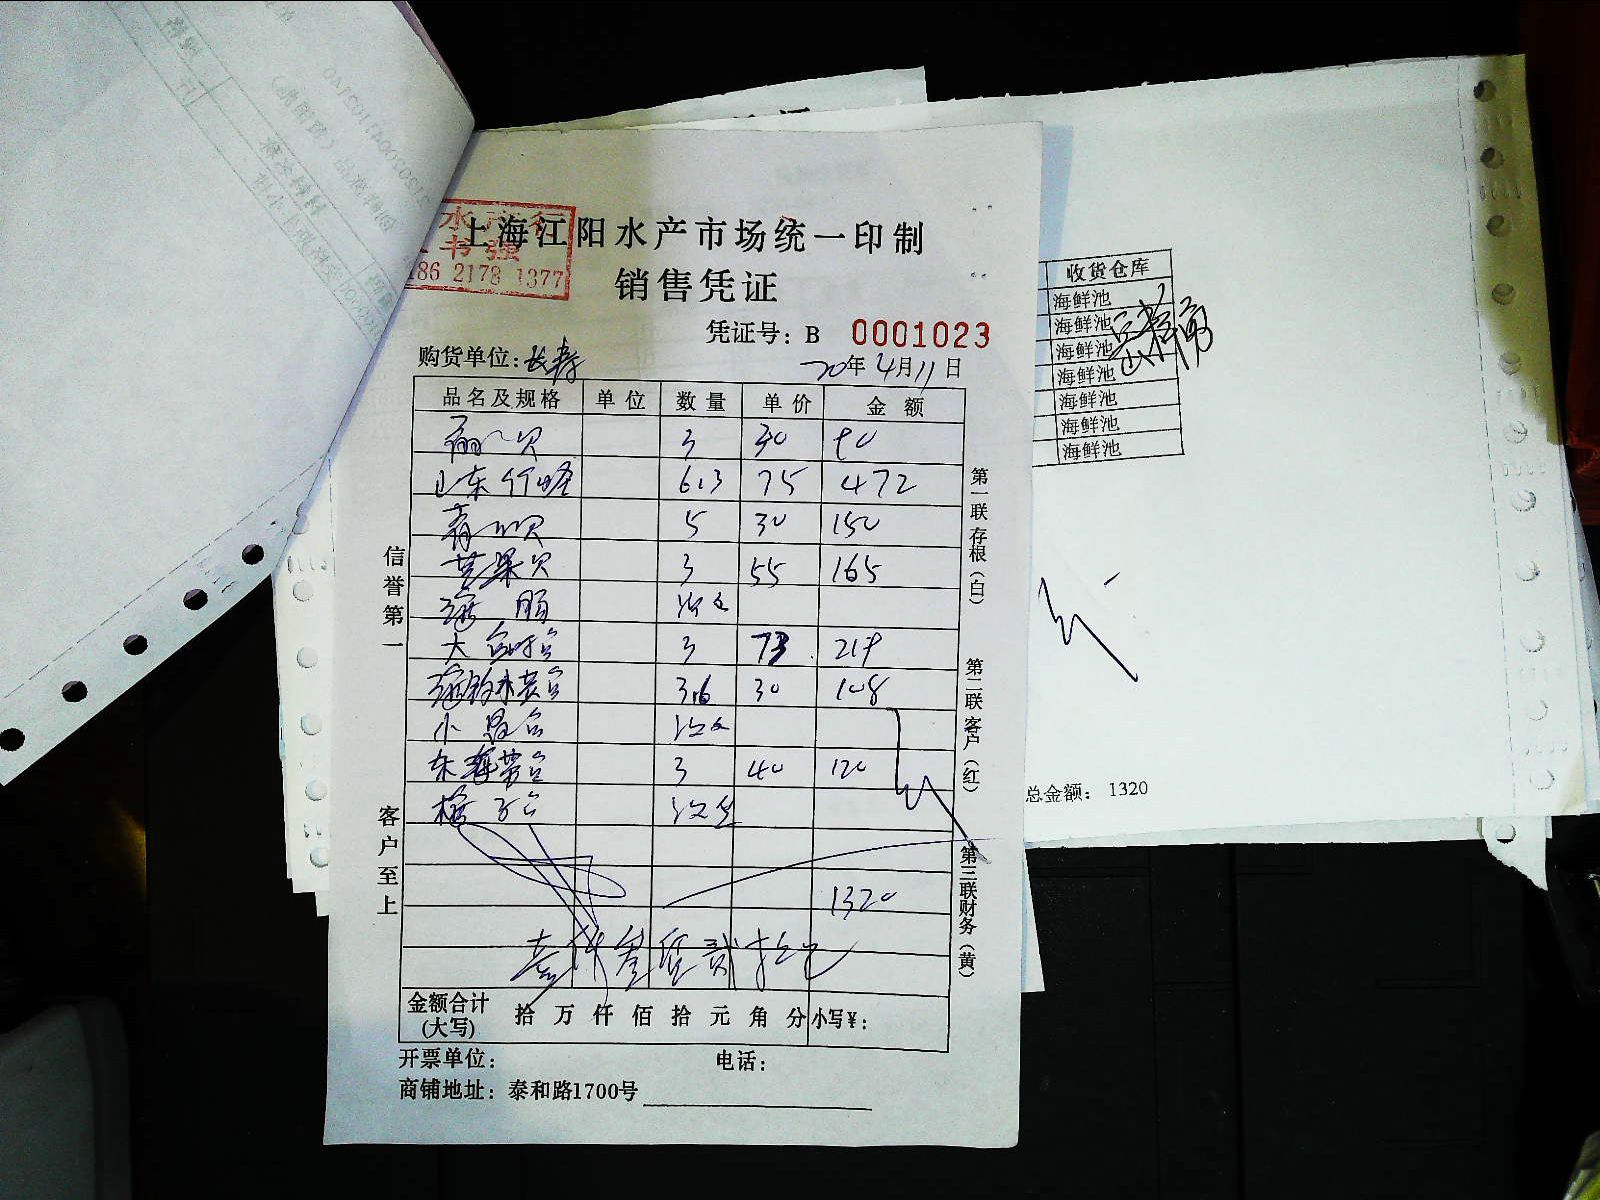 水产行
书强
186 2178 1377
上海江阳水产市场统一印制
销售凭证
凭证号：B 0001023
购货单位：长寿 20年4月11日
品名及规格 单位 数量 单价 金额
贝 3 30 90
山东竹蛏 6.3 75 472
青口贝 5 30 150
芸果贝 3 55 165
海肠 没发
大 3 73 219
3.6 30 108
小 没发
东海 3 40 120
没发
1320
壹仟叁佰贰拾元
金额合计(大写) 拾 万 仟 佰 拾 元 角 分 小写¥：
开票单位： 电话：
商铺地址：泰和路1700号
信誉第一
客户至上
第一联存根（白）
第二联客户（红）
第三联财务（黄）
收货仓库
海鲜池
海鲜池
海鲜池
海鲜池
海鲜池
海鲜池
海鲜池
总金额： 1320